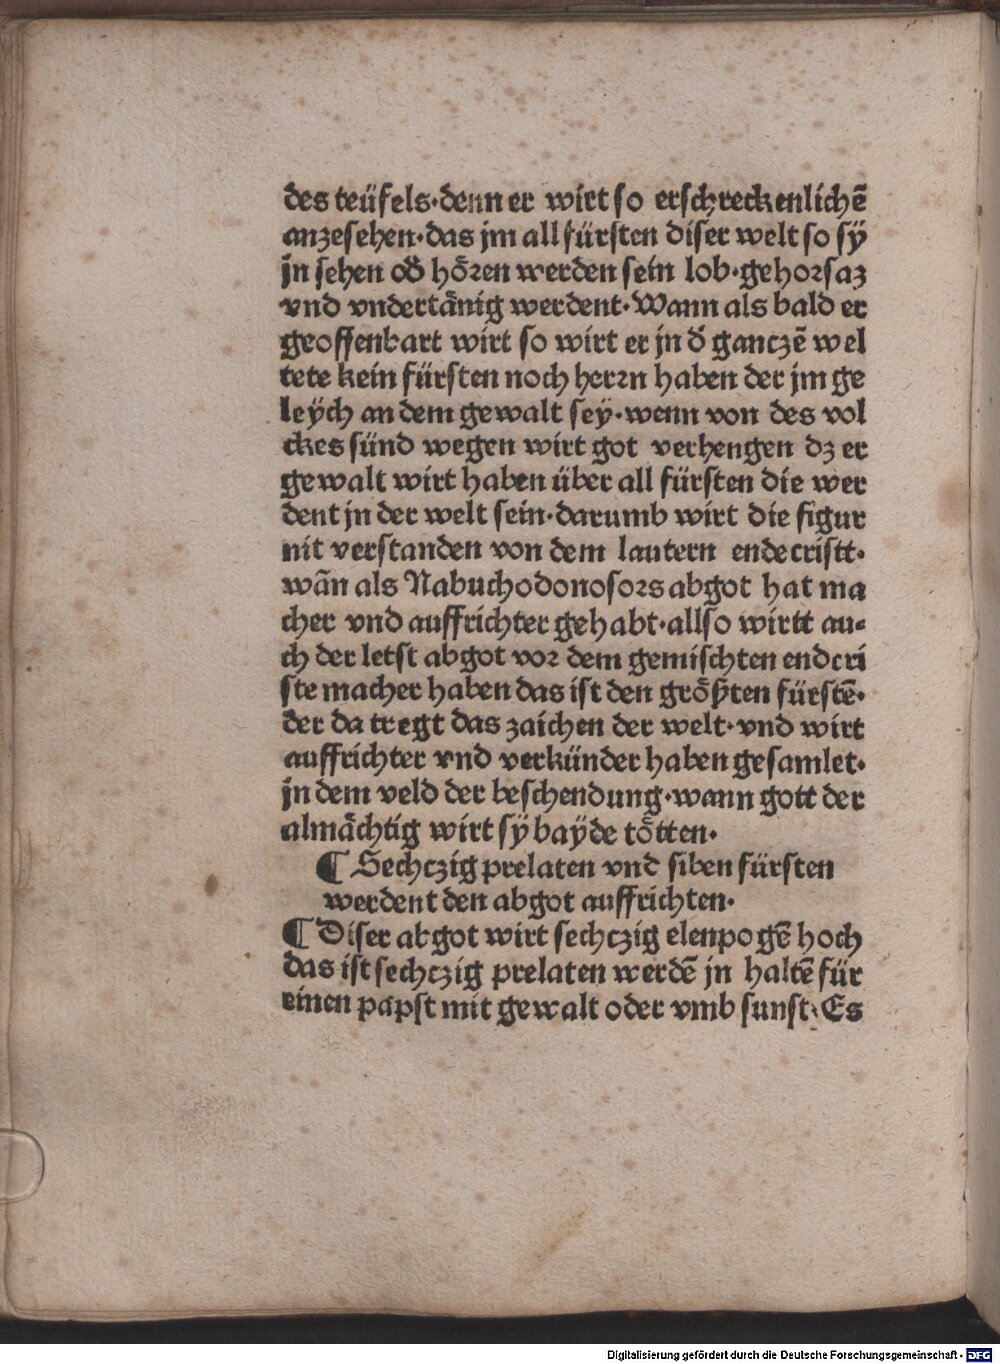 des teüfels·denn er wirt so erschreckenlichē
anzesehen·das jm all fürsten diser welt so sÿ
jn sehen oď hören werden sein lob·gehorsaʒ
vnd vndertänig werdent·Wann als bald er
geoffenbart wirt so wirt er jn ď ganczē wel
tete kein fürsten noch herrn haben der jm ge
leÿch an dem gewalt seÿ·wenn von des vol
ckes sünd wegen wirt got verhengen dʒ er
gewalt wirt haben über all fürsten die wer
dent jn der welt sein·darumb wirt die figur
nit verstanden von dem lautern endecristt·
wān als Nabuchodonosors abgot hat ma
cher vnd auffrichter gehabt·allso wirtt au⸗
ch der letst abgot vor dem gemischten endcri
ste macher haben das ist den größten fürstē·
der da tregt das zaichen der welt·vnd wirt
auffrichter vnd verkünder haben gesamlet·
jn dem veld der beschendung·wann gott der
almächtig wirt sÿ baÿde tötten·
¶ Sechczig prelaten vnd siben fürsten
werdent den abgot auffrichten·
¶ Diser abgot wirt sechczig elenpogē hoch
das ist sechczig prelaten werdē jn haltē für
einen papst mit gewalt oder vmb sunst·Es
Digitalisierung gefördert durch die Deutsche Forschungsgemeinschaft - DFG